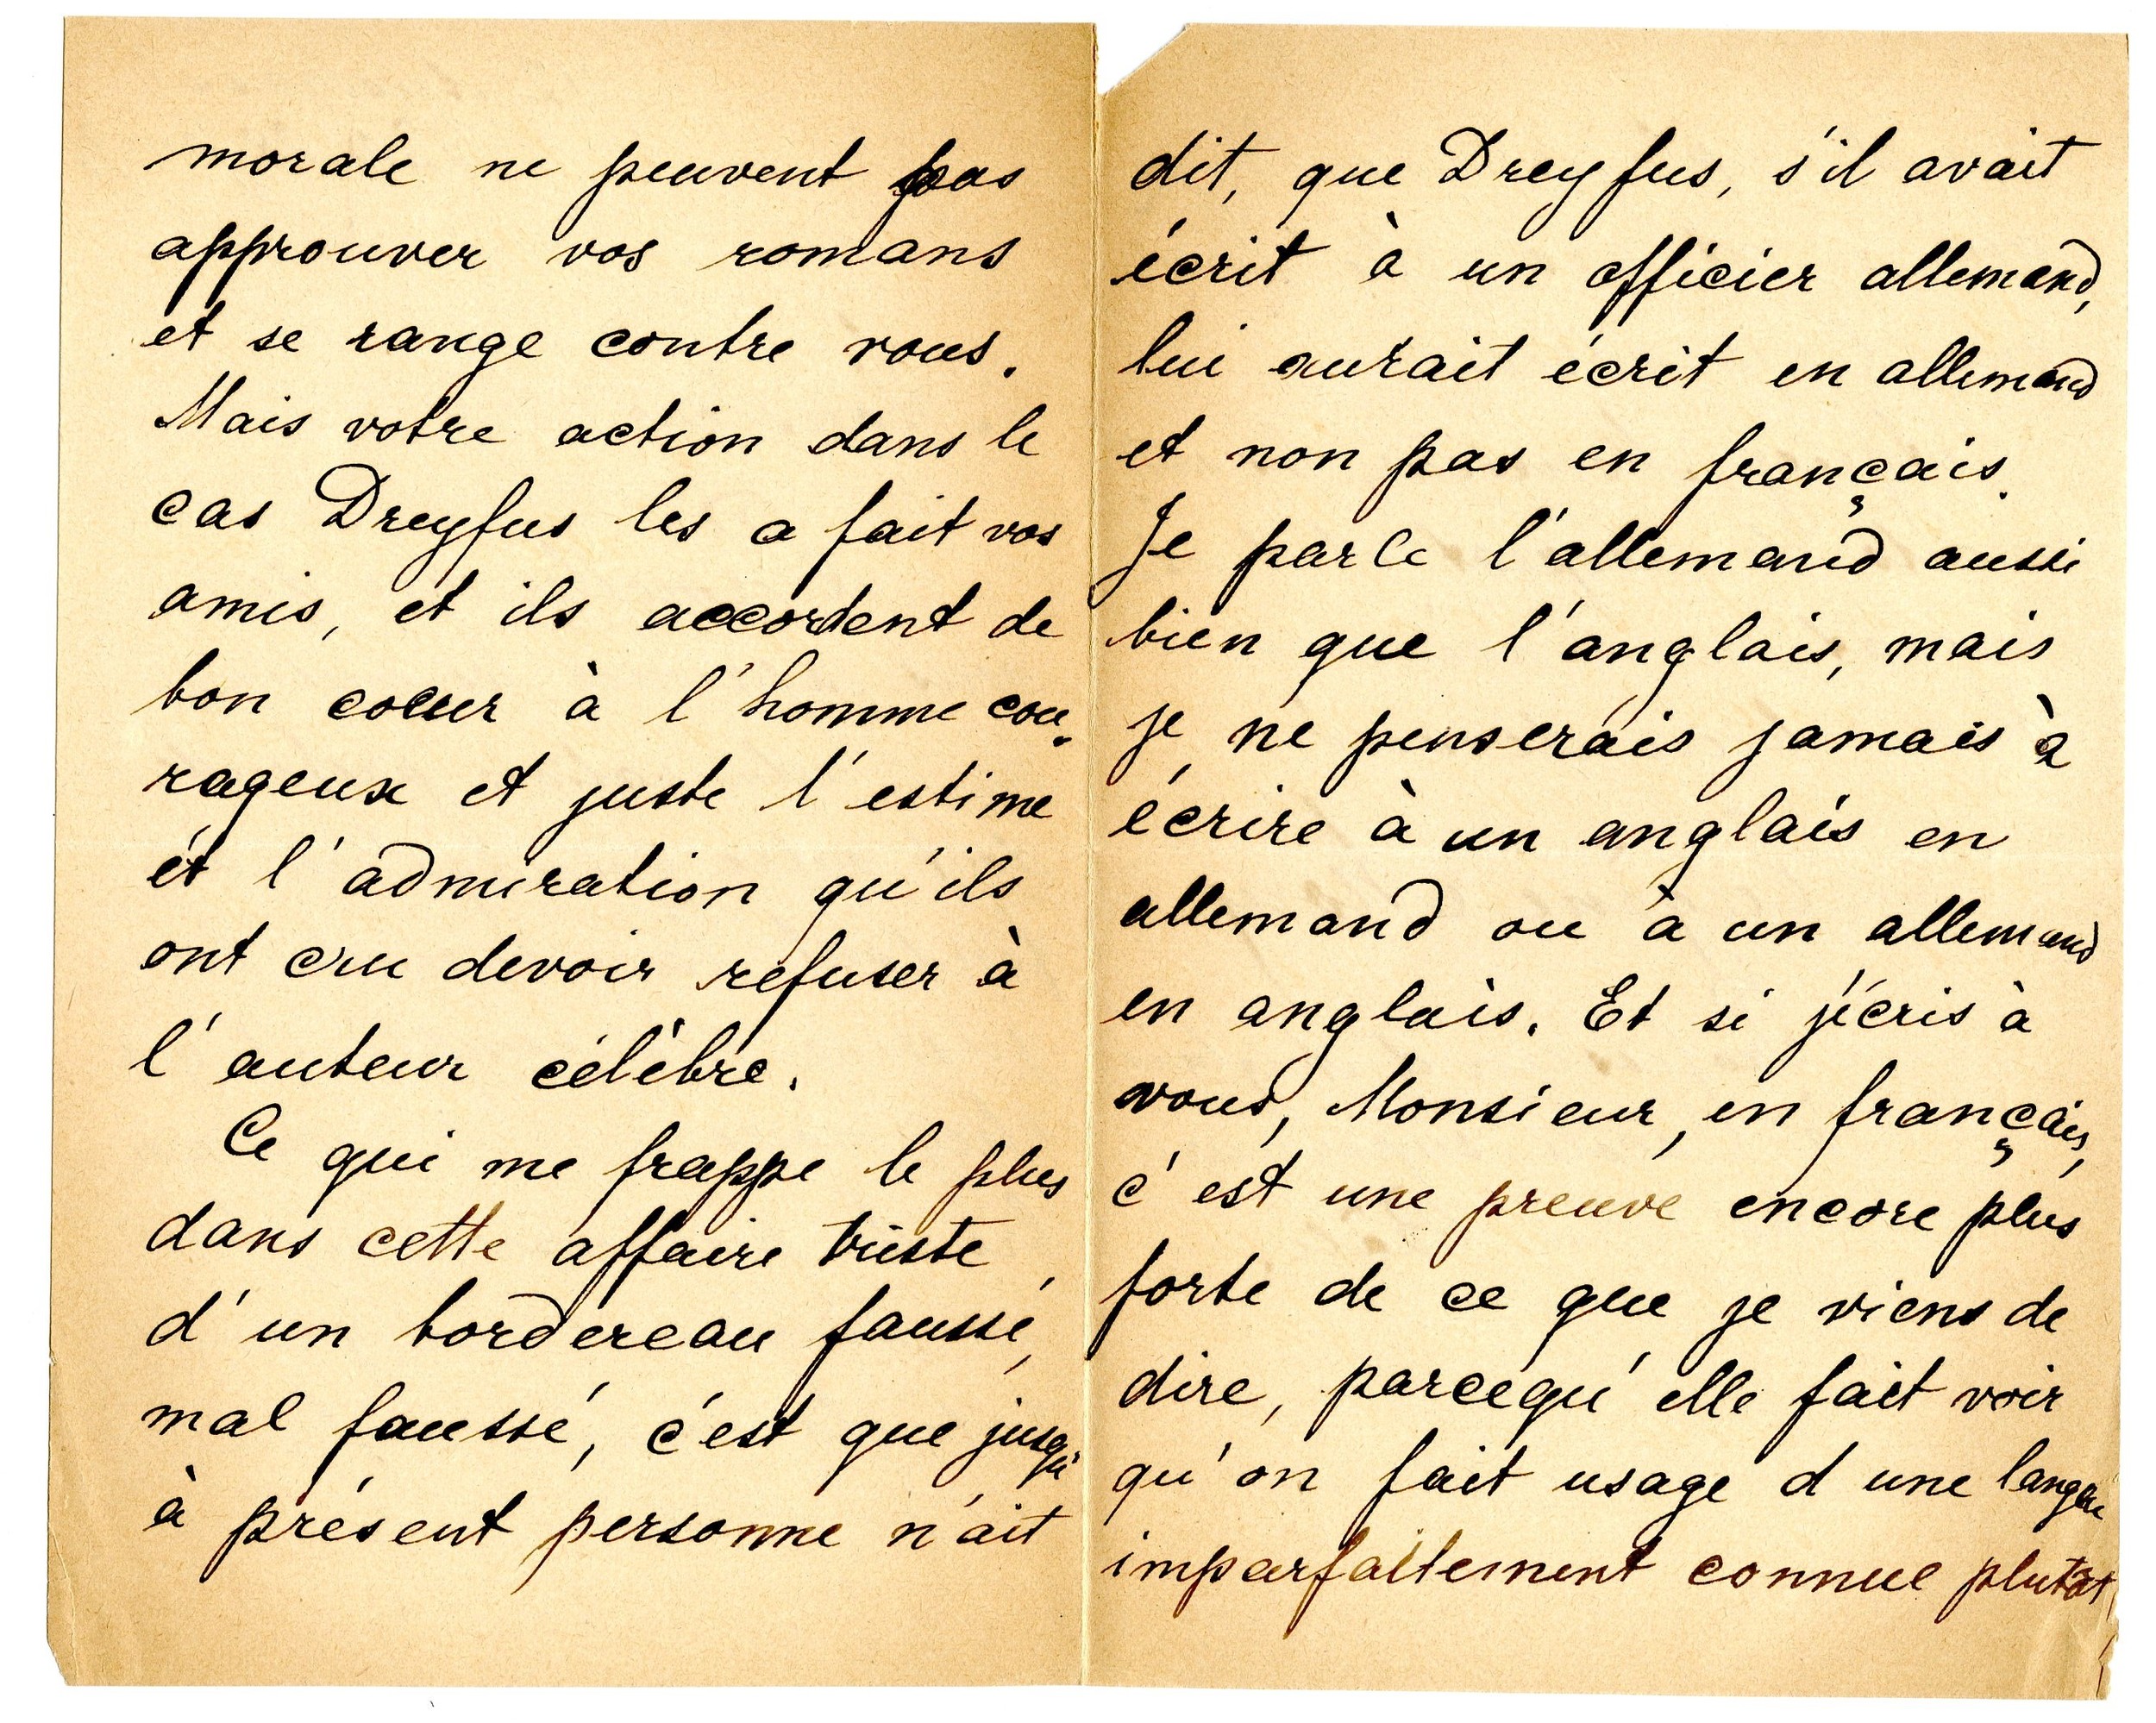 morale ne peuvent pas
approuver vos romans
et se range contre vous.
Mais votre action dans le
cas Dreyfus les a fait vos
amis, et ils accordent de
bon coeur à l'homme cou-
rageux et juste l'estime
et l'admiration qu'ils
ont cru devoir refuser à
l'auteur célèbre.
Ce qui me frappe le plus
dans cette affaire triste,
d'un bordereau faussé,
mal faussé, c'est que jusqu'
à présent personne n'ait
dit, que Dreyfus, s'il avait
écrit à un officier allemand,
lui aurait écrit en allemand
et non pas en français.
Je parle l'allemand aussi
bien que l'anglais, mais
je ne penserais jamais à
écrire à un anglais en
allemand ou à un allemand
en anglais. Et si j'écris à
vous, Monsieur, en français,
c'est une preuve encore plus
forte de ce que je viens de
dire, parcequ'elle fait voir
qu'on fait usage d'une langue
imparfaitement connue plutôt